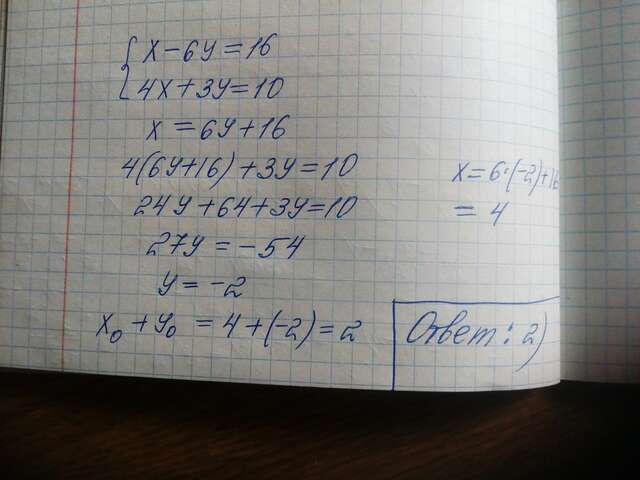 x-6y=16
4x+3y=10
x=6y+16
4(6y+16)+3y=10
24y+64+3y=10
27y=-54
y=-2
x=6·(-2)+16
=4
x₀+y₀=4+(-2)=2
Ответ: 2)